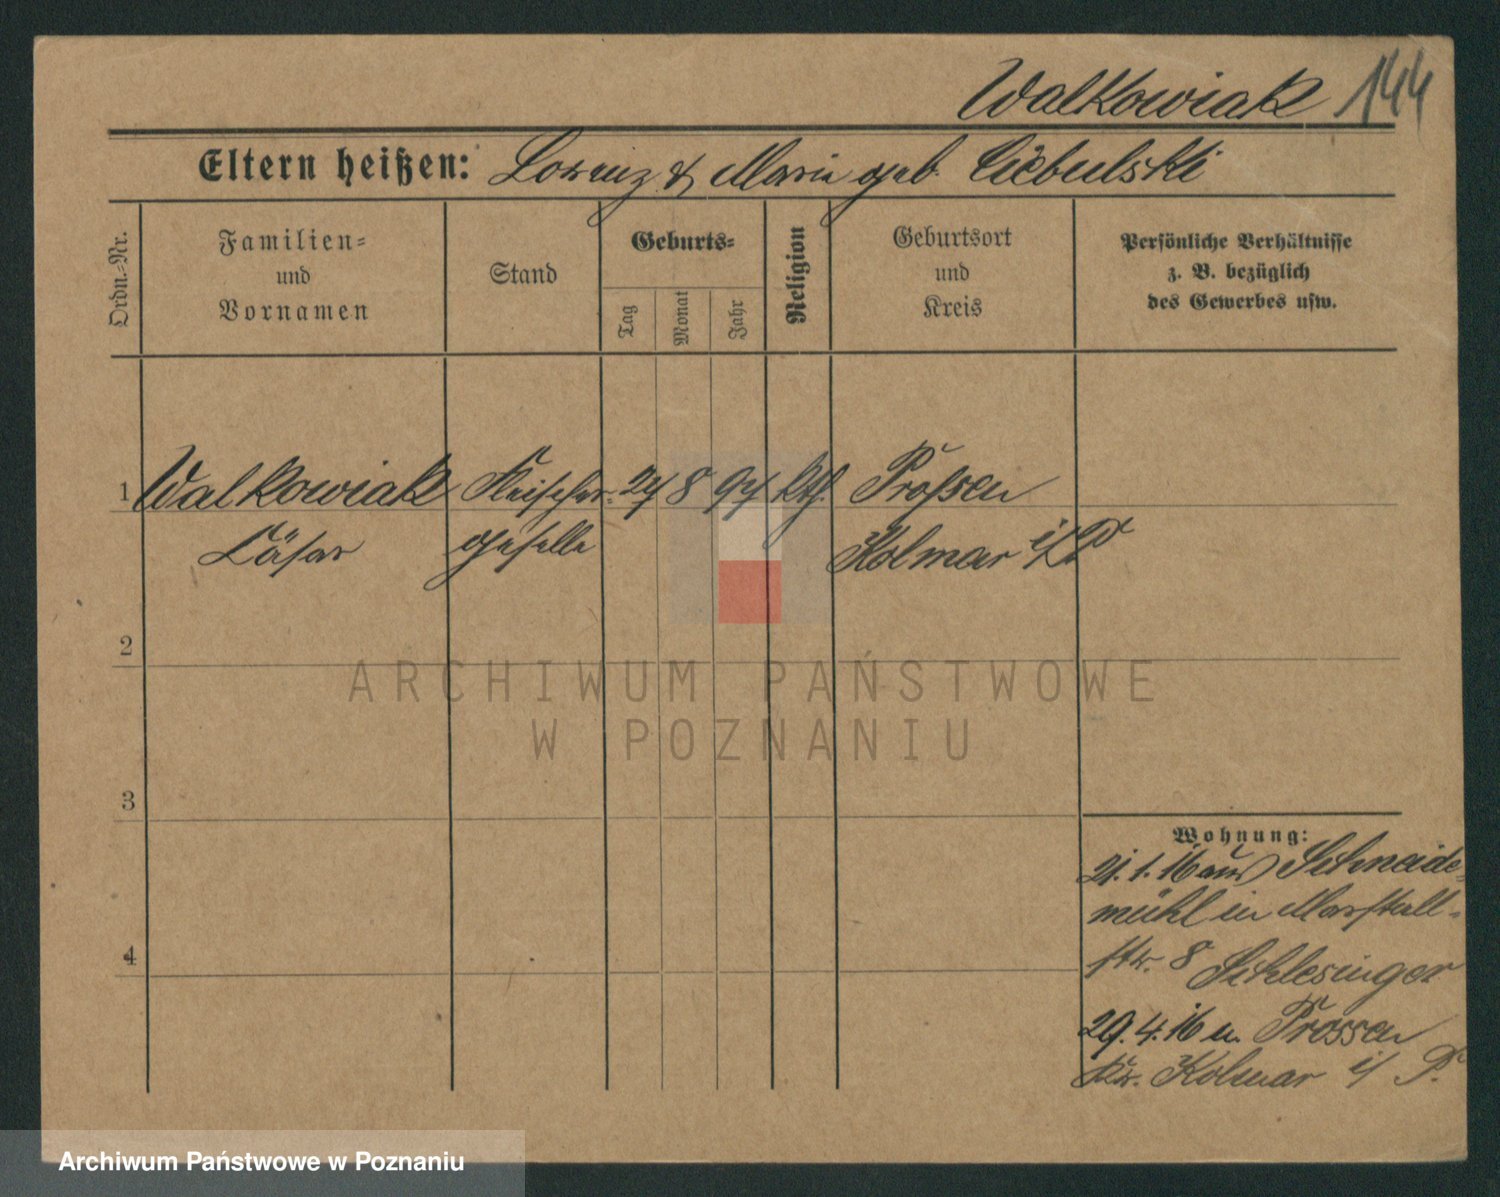 Walkowiak 144
Eltern heißen: Lorenz & Marie geb. Ciebulski
Ordn.=Nr.
Familien=
und
Vornamen
Stand
Geburts=
Tag
Monat
Jahr
Religion
Geburtsort
und
Kreis
Persönliche Verhältnisse
z. B. bezüglich
des Gewerbes usw.
1 Walkowiak Fleischer- 27 8 97 kth. Prossen
Cäsar geselle Kolmar i/P
2
3
4
Wohnung:
21.1.16 aus Schneide-
mühl in Marstall-
str. 8 Schlesinger
29.4.16 n. Prossen
Kr. Kolmar i/P.
ARCHIWUM PAŃSTWOWE
W POZNANIU
Archiwum Państwowe w Poznaniu